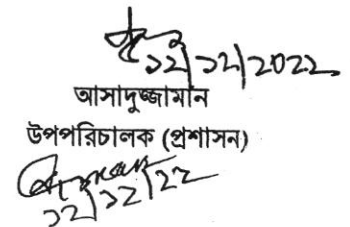 ১২/১২/২০২২
আসাদুজ্জামান
উপপরিচালক (প্রশাসন)
১২/১২/২২